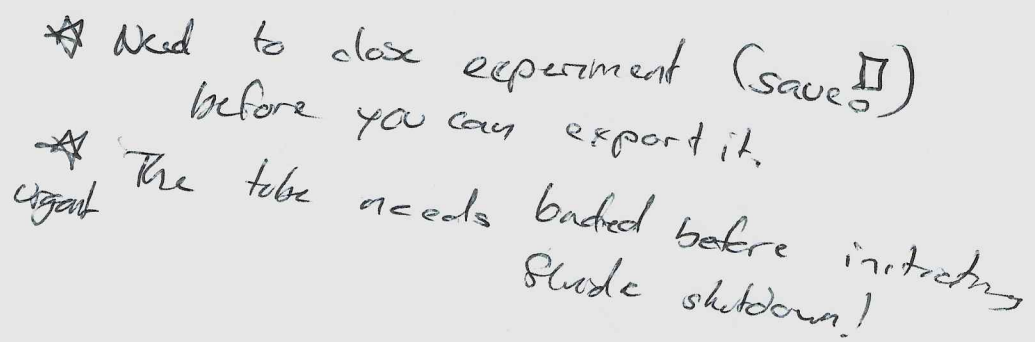 ☆ Need to close experiment (save!)
before you can export it.
☆ The tube needs before initiating
urgent
shutdown!